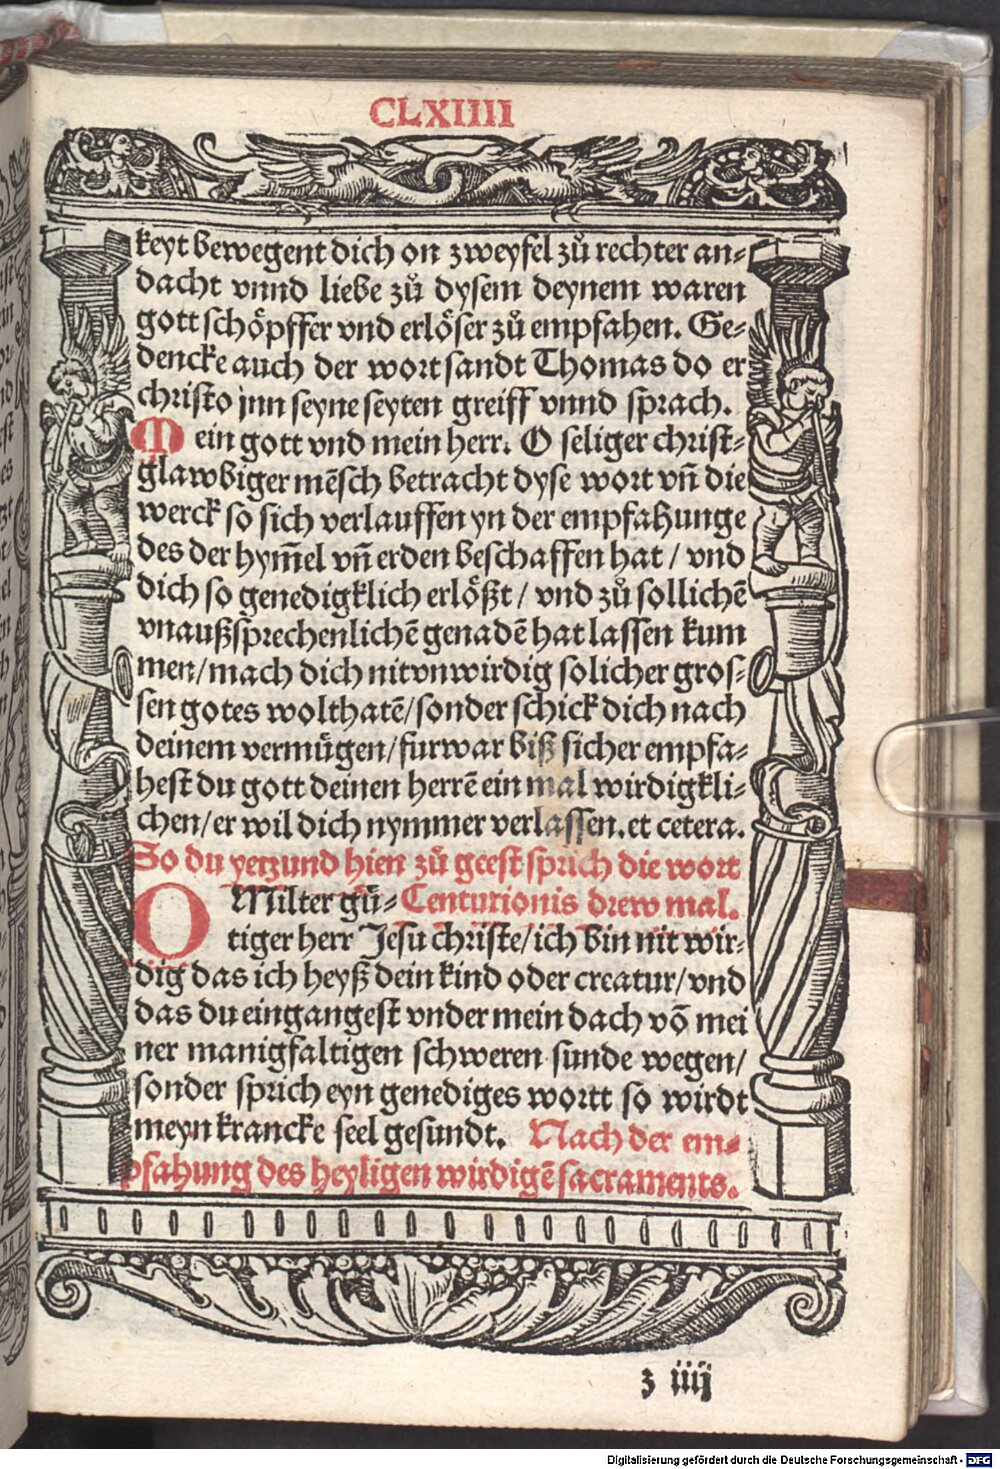 CLXIIII
keyt bewegent dich on zweyfel zů rechter an⸗
dacht vnnd liebe zů dysem deynem waren
gott schöpffer vnd erlöser zů empfahen. Ge⸗
dencke auch der wort sandt Thomas do er
christo jnn seyne seyten greiff vnnd sprach.
Mein gott vnd mein herr. O seliger christ⸗
glawbiger mēsch betracht dyse wort vn̄ die
werck so sich verlauffen yn der empfahunge
des der hym̄el vn̄ erden beschaffen hat / vnd
dich so genedigklich erlößt / vnd zů sollichē
vnaußsprechenlichē genadē hat lassen kum
men/mach dich nit vnwirdig solicher gros⸗
sen gotes wolthatē/sonder schick dich nach
deinem vermügen/furwar biß sicher empfa⸗
hest du gott deinen herrē ein mal wirdigkli⸗
chen/er wil dich nymmer verlassen. et cetera.
So du yetzund hien zů geest sprich die wort
O Milter gü⸗ Centurionis drew mal.
tiger herr Jesu christe/ich bin nit wir⸗
dig das ich heyß dein kind oder creatur/vnd
das du eingangest vnder mein dach vō mei
ner manigfaltigen schweren sunde wegen/
sonder sprich eyn genediges wortt so wirdt
meyn krancke seel gesundt. Nach der em⸗
pfahung des heyligen wirdigē sacraments.
z iiij
Digitalisierung gefördert durch die Deutsche Forschungsgemeinschaft - DFG